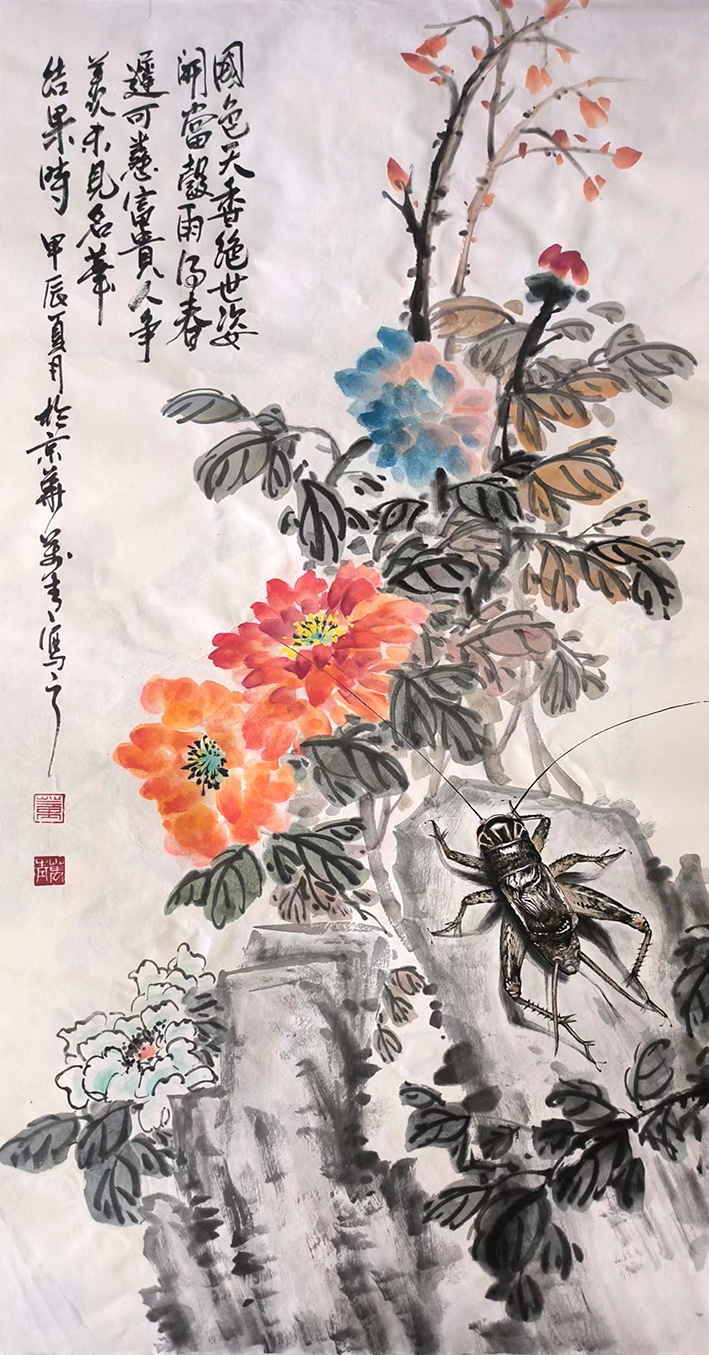 國色天香絕世姿
開當穀雨得春
遲可憐富貴人爭
羨未見名華
結果時 甲辰夏月於京華萬青寫之
萬
萬青